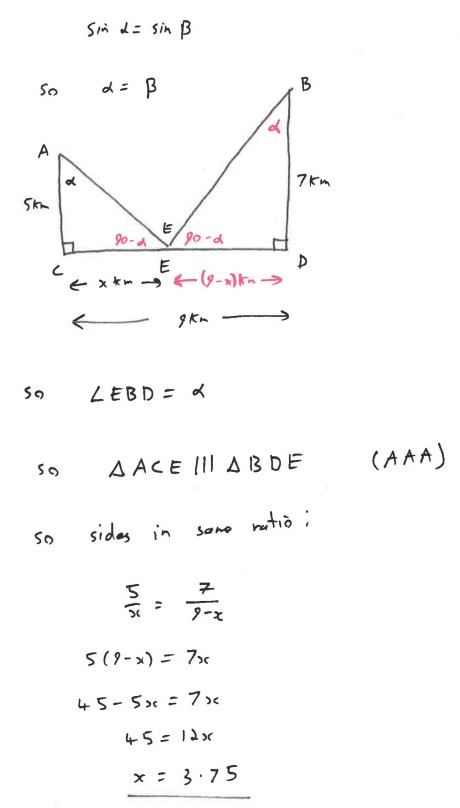 sin α = sin β
so α = β
B
α
A
α
7km
5km
E
90-α 90-α
C E D
x km (9-x)km
9km
so ∠EBD = α
so ΔACE ||| ΔBDE (AAA)
so sides in same ratio ;
5/x = 7/9-x
5(9-x) = 7x
45-5x = 7x
45 = 12x
x = 3.75